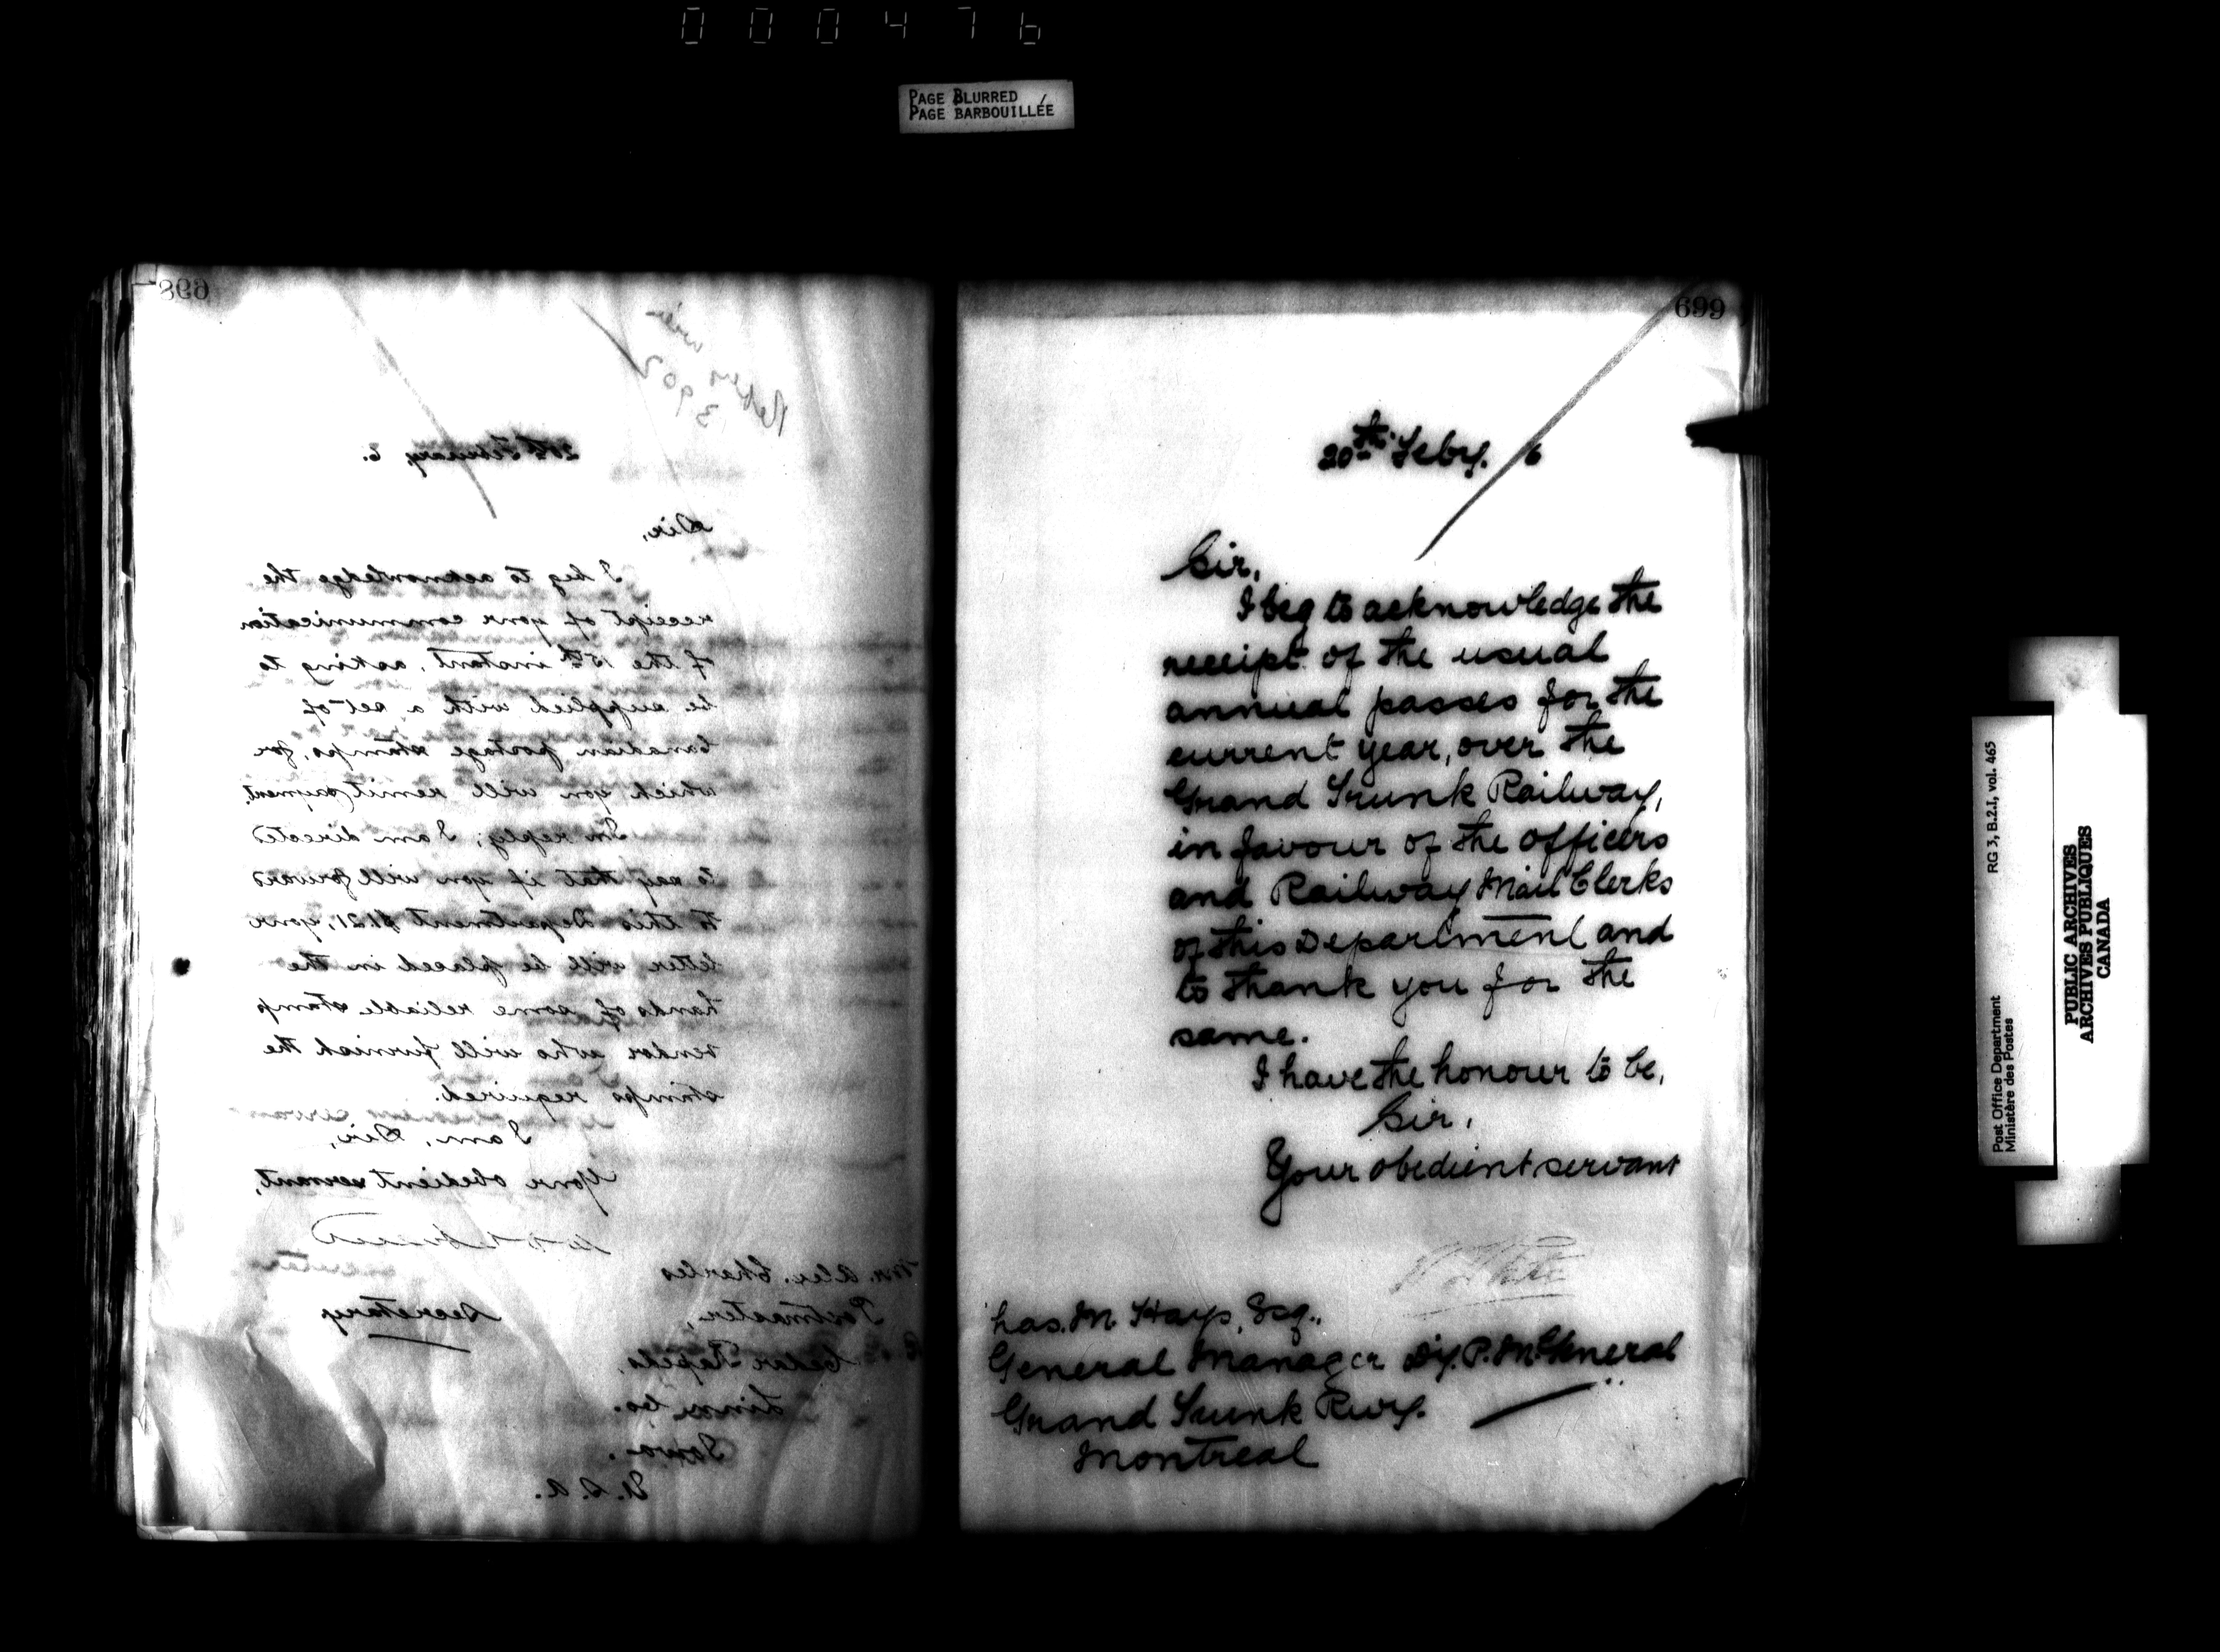 000476
PAGE BLURRED
PAGE BARBOUILLÉE
698
3902
20th February, 6.
Sir,
I beg to acknowledge the
receipt of your communication
of the 15th instant, asking to
be supplied with a set of
Canadian postage stamps, for
which you will remit payment.
In reply, I am directed
to say that if you will forward
to this Department $1.21, your
letter will be placed in the
hands of some reliable stamp
vendor who will furnish the
stamps required.
I am, Sir,
Your obedient servant,
Secretary
Mr. Alex. Charles
Postmaster,
Cedar Rapids,
Linn Co.
Iowa.
U.S.A.
699
20th Feby. 6
Sir,
I beg to acknowledge the
receipt of the usual
annual passes for the
current year, over the
Grand Trunk Railway,
in favour of the officers
and Railway Mail Clerks
of this Department and
to thank you for the
same.
I have the honour to be,
Sir,
Your obedient servant
has. M. Hays, Esq.,
General Manager Dy. P. M. General
Grand Trunk Rwy.
Montreal
RG 3, B.2.I, vol. 465
Post Office Department
Ministère des Postes
PUBLIC ARCHIVES
ARCHIVES PUBLIQUES
CANADA